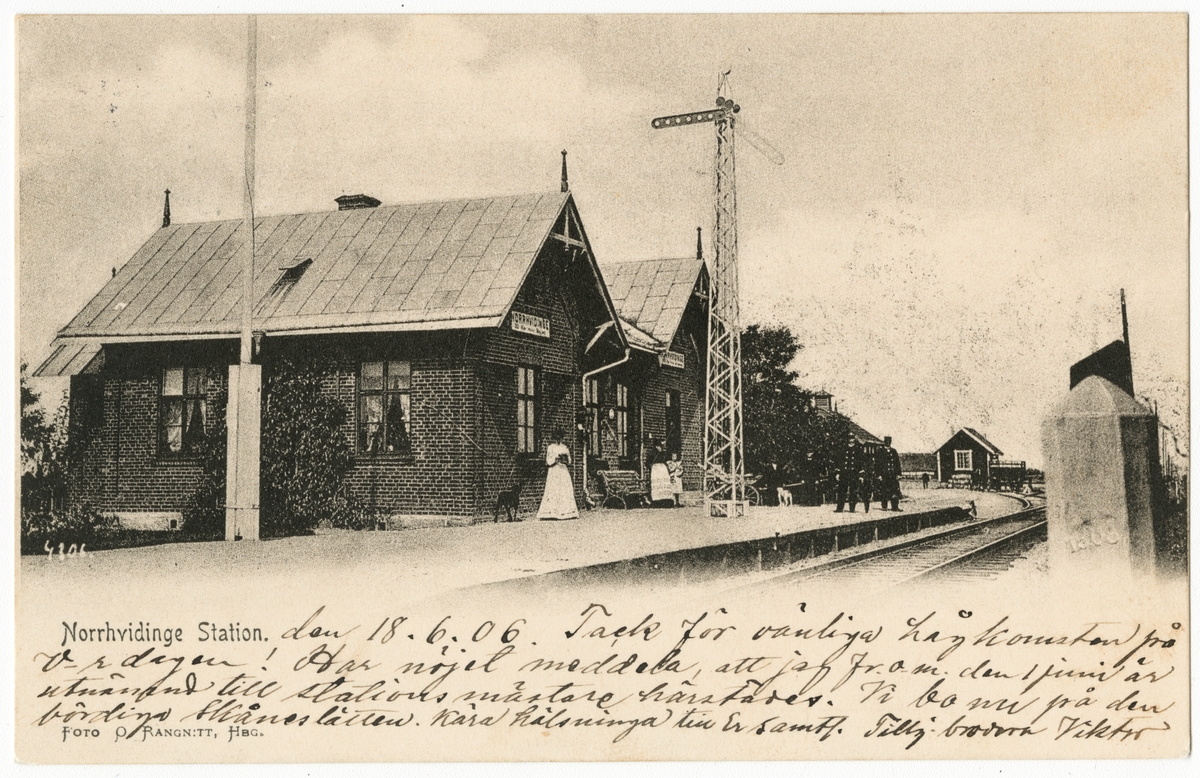 NORRHVIDINGE
4806
1800
Norrhvidinge Station. den 18.6.06. Tack för vänliga hågkomsten på
V-rdagen! Har nöjet meddela, att jag fr.o.m. den 1 juni är
utnämnd till stationsmästare härstädes. Vi bo nu på den
bördiga Skåneslätten. Kära hälsninga till Er samtl. Tillg. brodern Viktor
FOTO O. RANGN:TT, HBG.